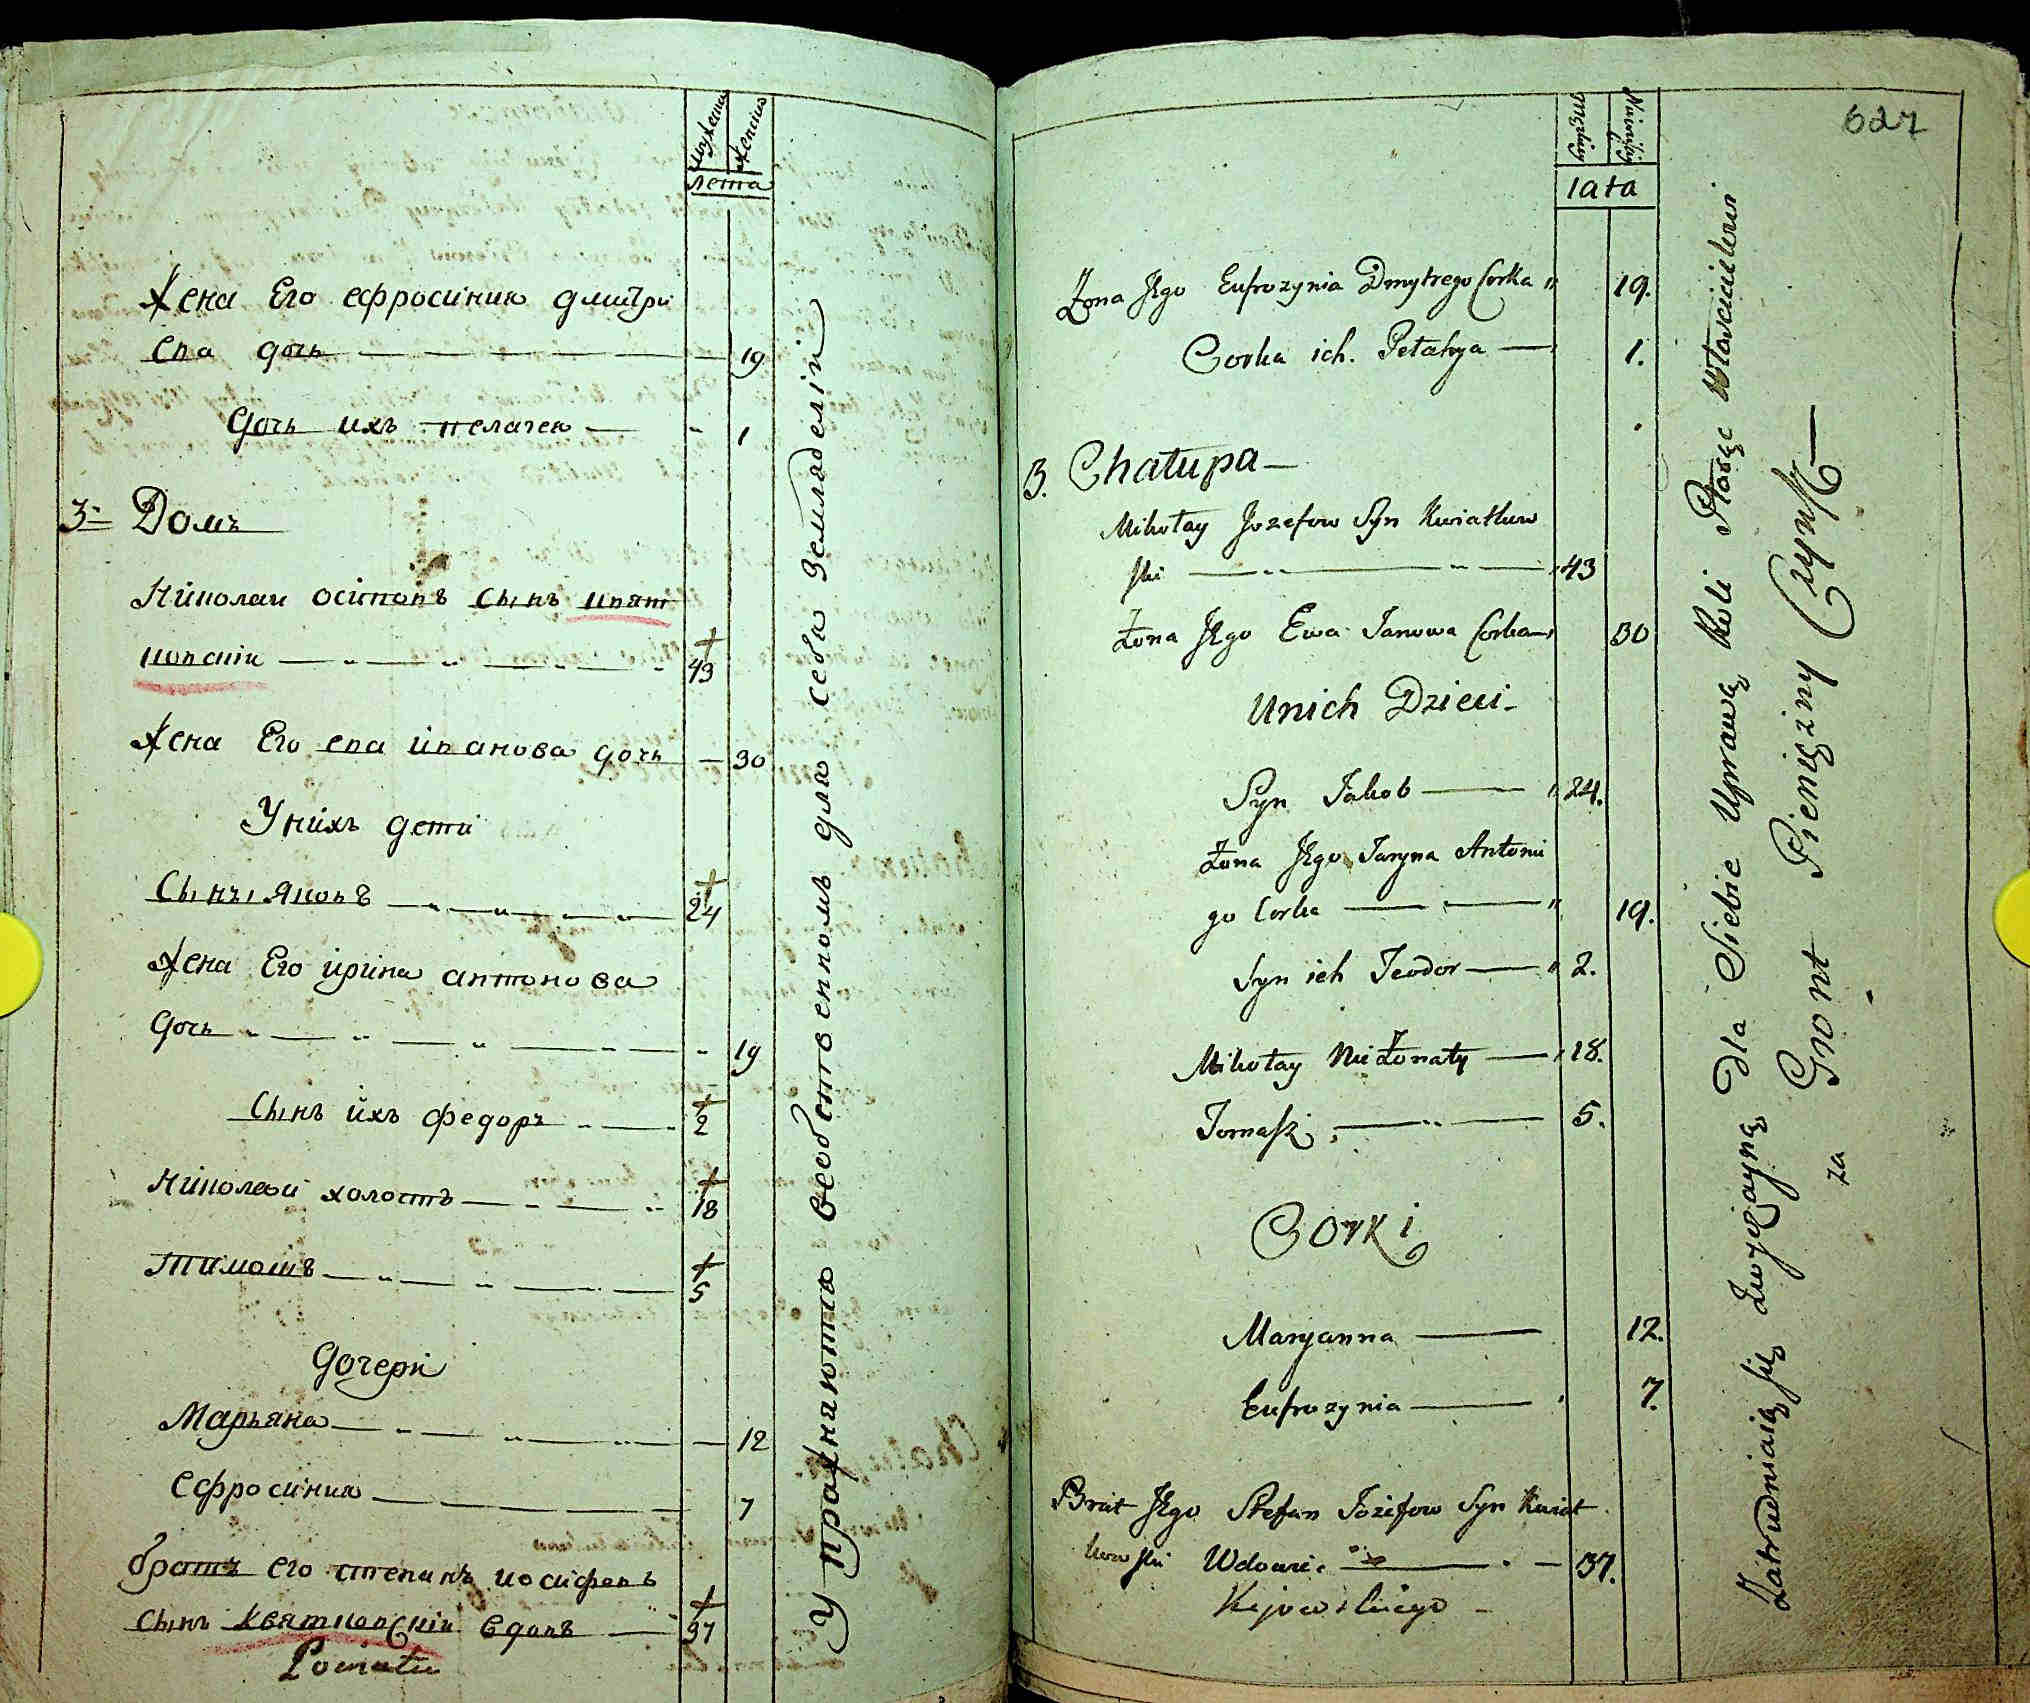 мужеска
женска
лета
Жена Его ефросиния дмитри
ева дочь — 19
дочь ихъ пелагея — 1
3 Домъ
Николаи осиповъ сынъ квят
ковскiи — 43
Жена Его ева иванова дочь — 30
У нихъ дети
Сынъ яковъ — 24
Жена Его ирина антонова
дочь — 19
сынъ ихъ федоръ — 2
Николаи холостъ — 18
тимошъ — 5
дочери
Марьяна — 12
ефросиния — 7
братъ его степанъ иосифовъ
сынъ квятковскiи вдовъ — 37
Powiatu
Упражняются в собственномъ для себя земладелiи
627
Męzkiey
Niewieściey
lata
Żona Jego Eufrozynia Dmytrego Corka 19.
Corka ich Pelahya — 1.
3. Chałupa —
Mikołay Jozefow Syn Kwiatkow
ski — 43
Żona Jego Ewa Janowa Corka 30
U nich Dzieci —
Syn Jakob — 24.
Żona Jego Jaryna Antonie
go Corka — 19.
Syn ich Teodor — 2.
Mikołay Nieżonaty — 18.
Tomasz — 5.
Corki
Maryanna — 12.
Eufrozynia — 7.
Brat Jego Stefan Jozefow Syn Kwiat
kowski Wdowiec — 37.
Kijowskiego —
Zatrudniaią się Zwyczayną dla Siebie Uprawą Roli Płacąc Włascicielowi
za Gront Pieniężny Czynsz —